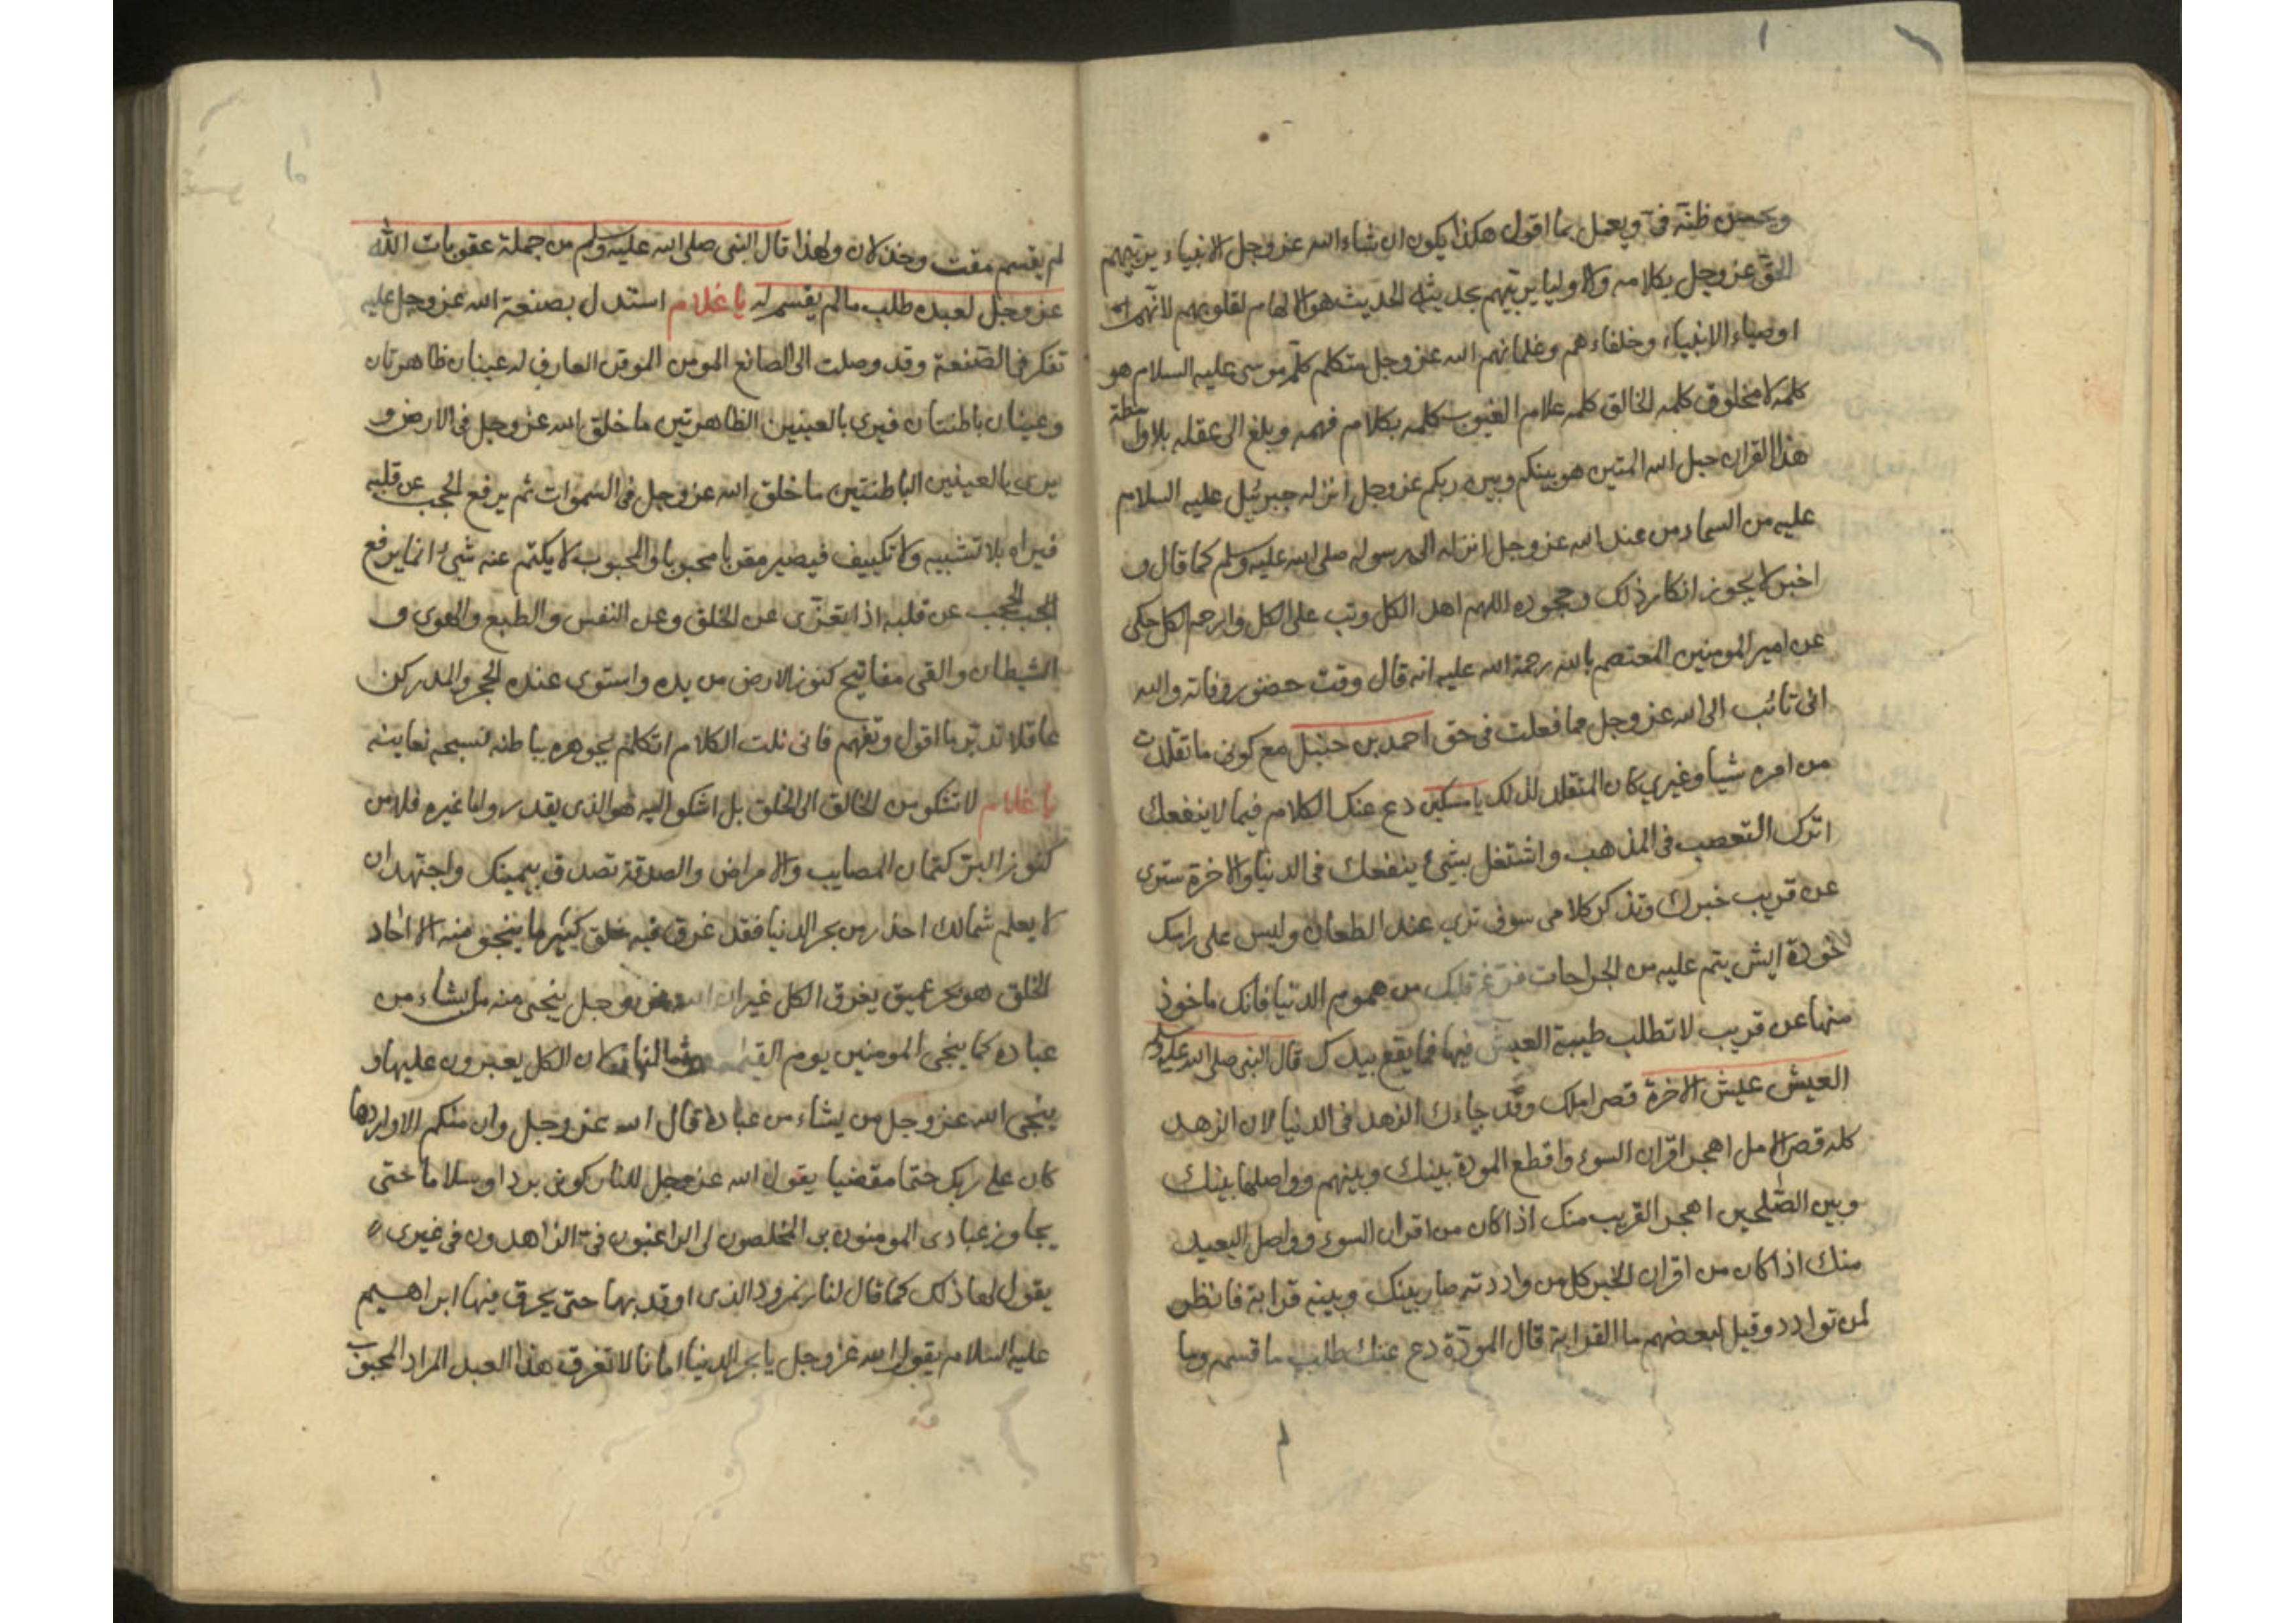 ويحسن ظنه في ويعمل بما اقول هكذا يكون ان شاء الله عز وجل الانبياء يربيهم
الحق عز وجل بكلامه والاوليا يربيهم بحديثه الحديث هو الالهام لقلوبهم لانهم
اوصياء الانبياء وخلفاءهم وغلمانهم الله عز وجل متكلم كلم موسى عليه السلام هو
كلمه لا مخلوق كلمه الخالق كلمه علام الغيوب كلمه بكلام فهمه وبلغ الى عقله بلا واسطة
هذا القران حبل الله المتين هو بينكم وبين ربكم عز وجل انزله جبرئيل عليه السلام
عليه من السماء من عند الله عز وجل انزله الى رسوله صلى الله عليه وسلم كما قال و
اخبر لا يجوز انكار ذلك وجحوده اللهم اهد الكل وتب على الكل وارحم الكل حكى
عن امير المومنين المعتصم بالله رحمة الله عليه انه قال وقت حضور وفاته والله
انى تائب الى الله عز وجل مما فعلت فى حق احمد بن حنبل مع كونى ما تقلدت
من امره شيا وغيري كان المتقلد لذلك يا مسكين دع عنك الكلام فيما لا ينفعك
اترك التعصب فى المذهب واشتغل بشئ ينفعك فى الدنيا والاخرة سترى
عن قريب خبرك وتذكر كلامى سوف ترى عند الطعان وليس على راسك
خودة ايش يتم عليه من الجراحات فرغ قلبك من هموم الدنيا فانك ماخوذ
منها عن قريب لا تطلب طيبة العيش فيها فما يقع بيدك قال النبى صلى الله عليه وسلم
العيش عيش الاخرة قصر املك وقد جاءك الزهد فى الدنيا لان الزهد
كله قصر الامل اهجر اقران السوء واقطع المودة بينك وبينهم وواصلها بينك
وبين الصلحين اهجر القريب منك اذا كان من اقران السوء وواصل البعيد
منك اذا كان من اقران الخير كل من واددته صار بينك وبينه قرابة فانظر
لمن توادد وقيل لبعضهم ما القرابة قال المودة دع عنك طلب ما قسم وما
لم يقسم مقت وخذلان ولهذا قال النبى صلى الله عليه وسلم من جملة عقوبات الله
عز وجل لعبده طلب ما لم يقسم له يا غلام استدل بصنعة الله عز وجل عليه
تفكر فى الصنعة وقد وصلت الى الصانع المومن الموقن العارف له عينان ظاهرتان
وعينان باطنتان فيرى بالعينين الظاهرتين ما خلق الله عز وجل فى الارض و
يرى بالعينين الباطنتين ما خلق الله عز وجل فى السموات ثم يرفع الحجب عن قلبه
فيراه بلا تشبيه ولا تكييف فيصير مقربا محبوبا والمحبوب لا يكتم عنه شئ انما يرفع
الحجب عن قلبه اذا تعرى عن الخلق وعن النفس والطبع والهوى و
الشيطان والقى مفاتيح كنوز الارض من يده واستوى عنده الحجر والمدر كن
عاقلا تدبر ما اقول وتفهم فانى نلت الكلام اتكلم بجوهره بباطنه
يا غلام لا تشكو من الخالق الى الخلق بل اشكو اليه هو الذى يقدر واما غيره فلا من
كنوز البر كتمان المصايب والامراض والصدقة تصدق بيمينك واجتهد ان
لا يعلم شمالك احذر من بحر الدنيا فقد غرق فيه خلق كثير ما ينجو منه الا احاد
الخلق هو بحر عميق يغرق الكل غير ان الله عز وجل ينجى منه من يشاء من
عباده كما ينجى المومنين يوم القيمة من النار كان الكل يعبرون عليها و
ينجى الله عز وجل من يشاء من عباده قال الله عز وجل وان منكم الا واردها
كان على ربك حتما مقضيا يقول الله عز وجل للنار كونى بردا وسلاما حتى
يجاوز عبادى المومنون بى المخلصون لى الراغبون فى الزاهدون فى غيرى
يقول لها ذلك كما قال لنار نمرود الذى اوقد بها حتى يحرق فيها ابراهيم
عليه السلام يقول الله عز وجل يا بحر الدنيا يا ما لا تغرق هذا العبد المراد المحبوب